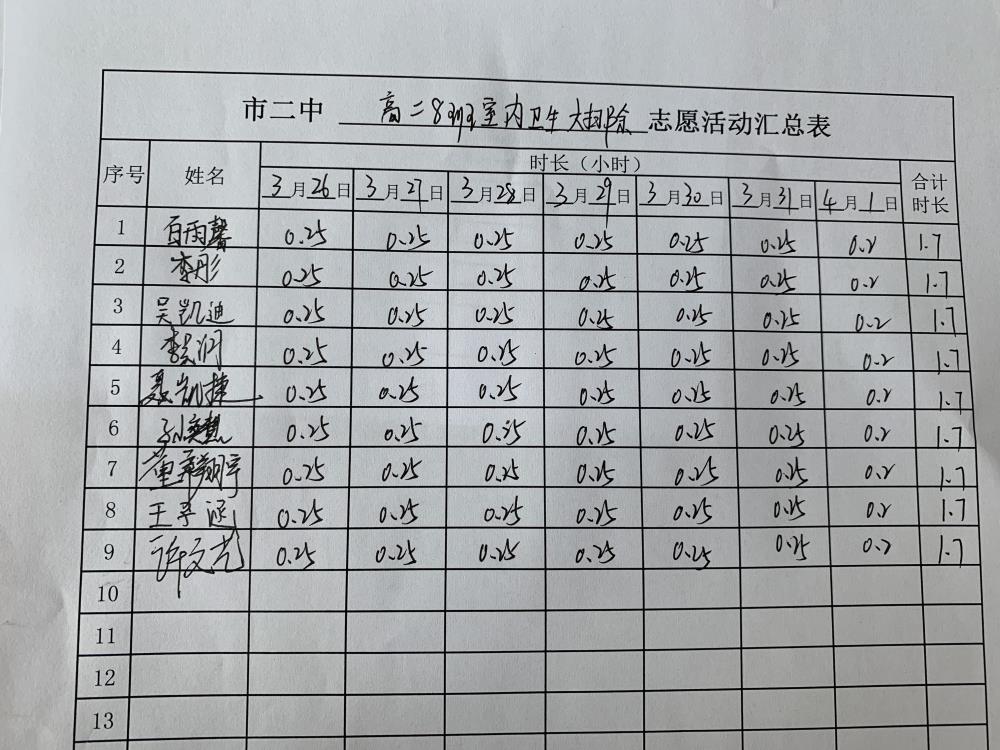 市二中 高二8班室内卫生大扫除 志愿活动汇总表
序号 姓名 时长（小时） 合计时长
3月26日 3月27日 3月28日 3月29日 3月30日 3月31日 4月1日
1 百雨馨 0.25 0.25 0.25 0.25 0.25 0.25 0.2 1.7
2 李彤 0.25 0.25 0.25 0.25 0.25 0.25 0.2 1.7
3 吴凯迪 0.25 0.25 0.25 0.25 0.25 0.25 0.2 1.7
4 0.25 0.25 0.25 0.25 0.25 0.25 0.2 1.7
5 聂凯捷 0.25 0.25 0.25 0.25 0.25 0.25 0.2 1.7
6 0.25 0.25 0.25 0.25 0.25 0.25 0.2 1.7
7 0.25 0.25 0.25 0.25 0.25 0.25 0.2 1.7
8 0.25 0.25 0.25 0.25 0.25 0.25 0.2 1.7
9 许文艺 0.25 0.25 0.25 0.25 0.25 0.25 0.2 1.7
10
11
12
13